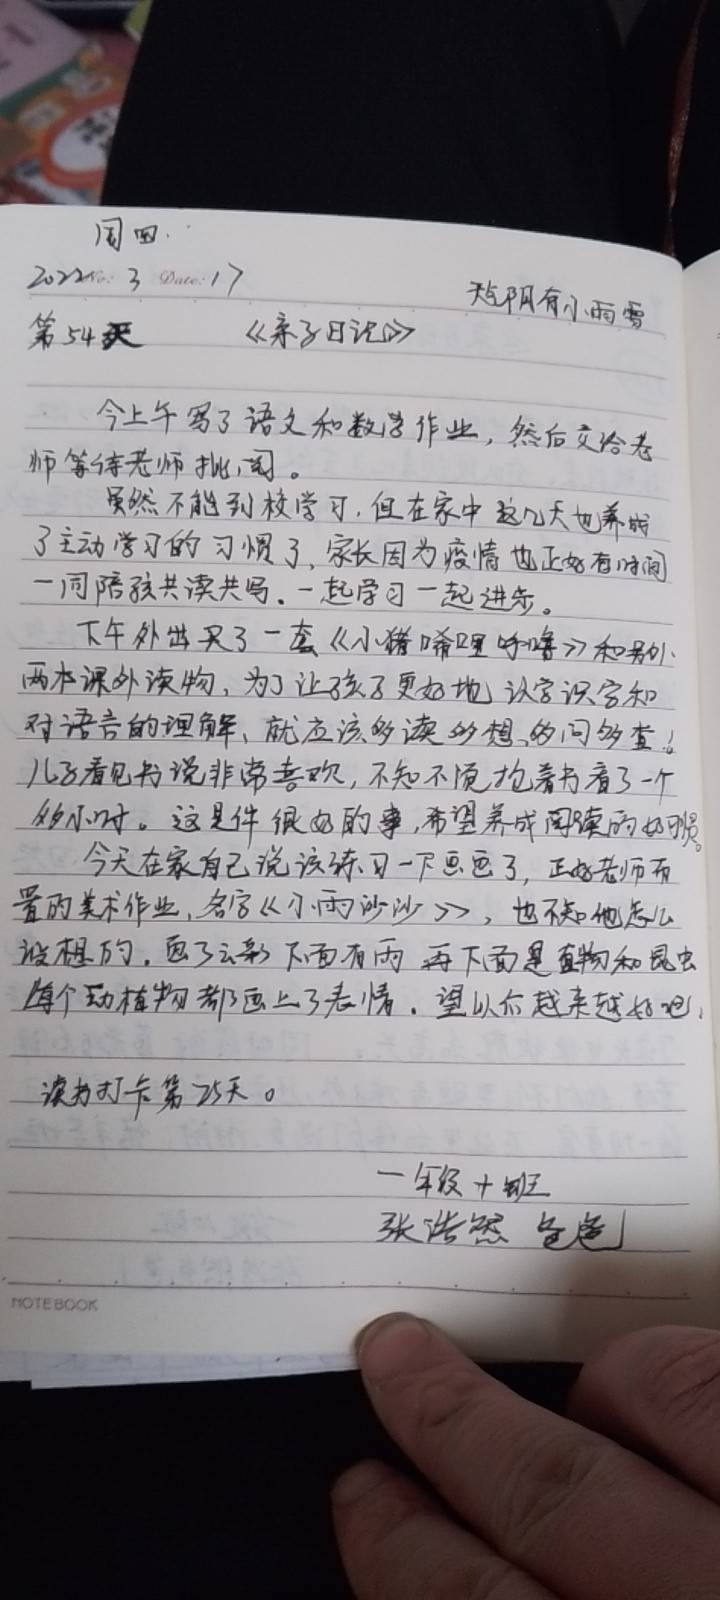 周四.
2022 No: 3 Date: 17
天气阴有小雨雪
第54天 《亲子日记》
今上午写了语文和数学作业，然后交给老
师等待老师批阅。
虽然不能到校学习，但在家中这几天也养成
了主动学习的习惯了，家长因为疫情也正好有时间
一同陪孩共读共写、一起学习一起进步。
下午外出买了一套《小猪唏哩呼噜》和另外
两本课外读物，为了让孩子更好地认字识字和
对语言的理解、就应该多读多想、多问多查！
儿子看见书说非常喜欢，不知不觉抱着书看了一个
多小时。这是件很好的事，希望养成阅读的好习惯。
今天在家自己说该练习一下画画了，正好老师布
置的美术作业，名字《小雨沙沙》，也不知他怎么
设想的，画了云彩下面有雨再下面是植物和昆虫
每个动植物都画上了表情。望以后越来越好吧，
读书打卡第25天。
一年级十班
张浩然 爸爸
NOTEBOOK